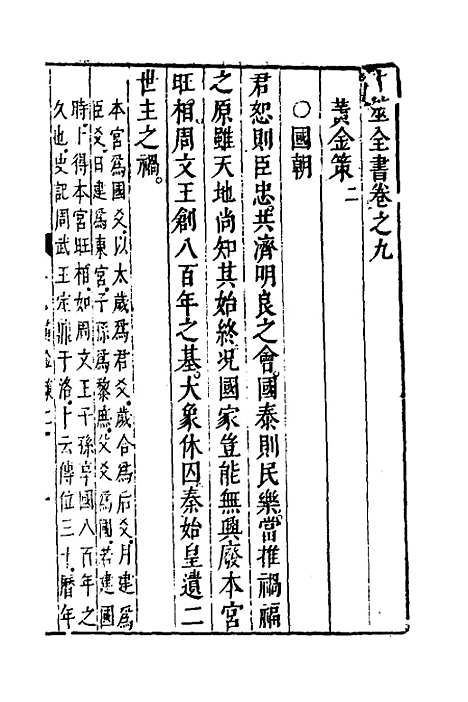 卜筮全書卷之九
黃金策二
○國朝
君恕則臣忠。共濟明良之會。國泰則民樂。當推禍福
之原雖天地尚知其始終。况國家豈能無興廢本宮
旺相。周文王創八百年之基。大象休囚。秦始皇遺二
世主之禍。
本宮爲國爻。以太歲爲君爻。歲合爲后爻。月建爲
臣爻。日建爲東宮。子孫爲黎庶。父爻爲國。若建國
時。卜得本宮旺相。如周文王子孫享國八百年之
久也。史記周武王定鼎于洛。卜云傳位三十。曆年
黃金策二 一